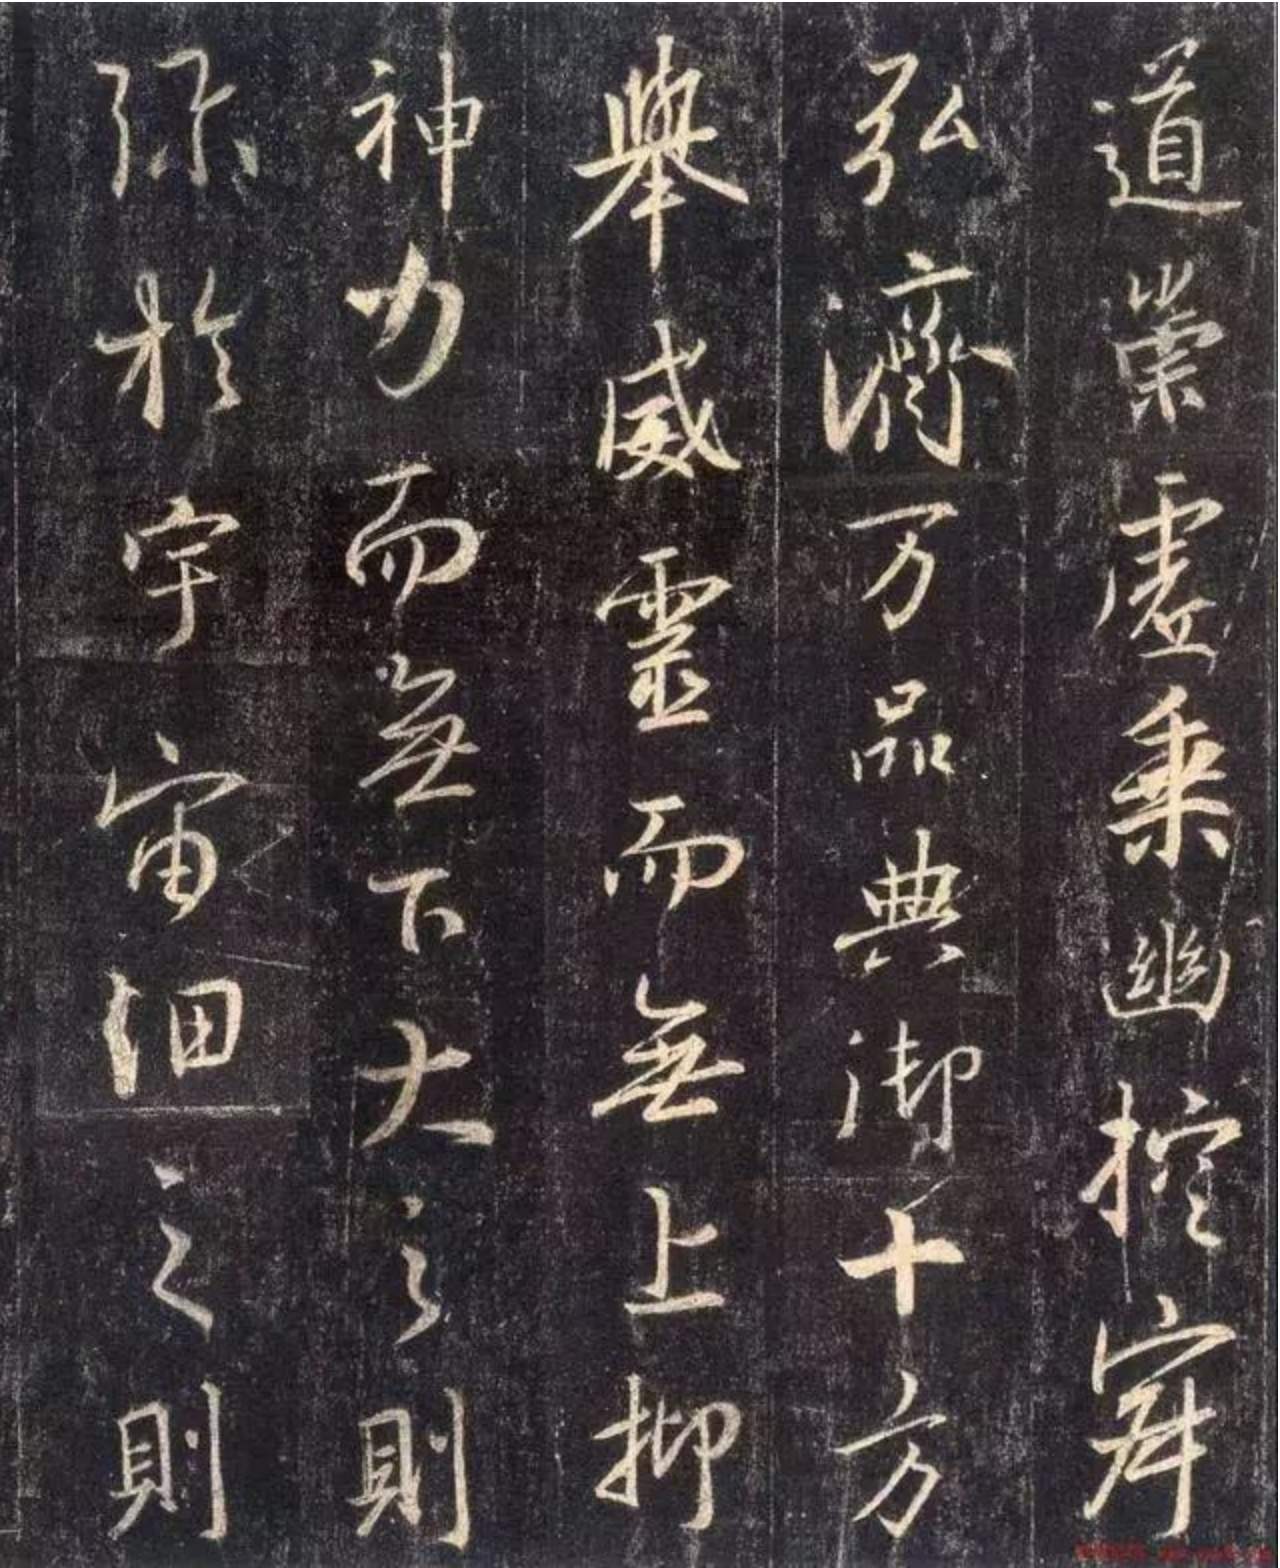 道崇虚乗幽控寂
弘濟万品典御十方
舉威靈而無上抑
神力而無下大之則
弥於宇宙細之則